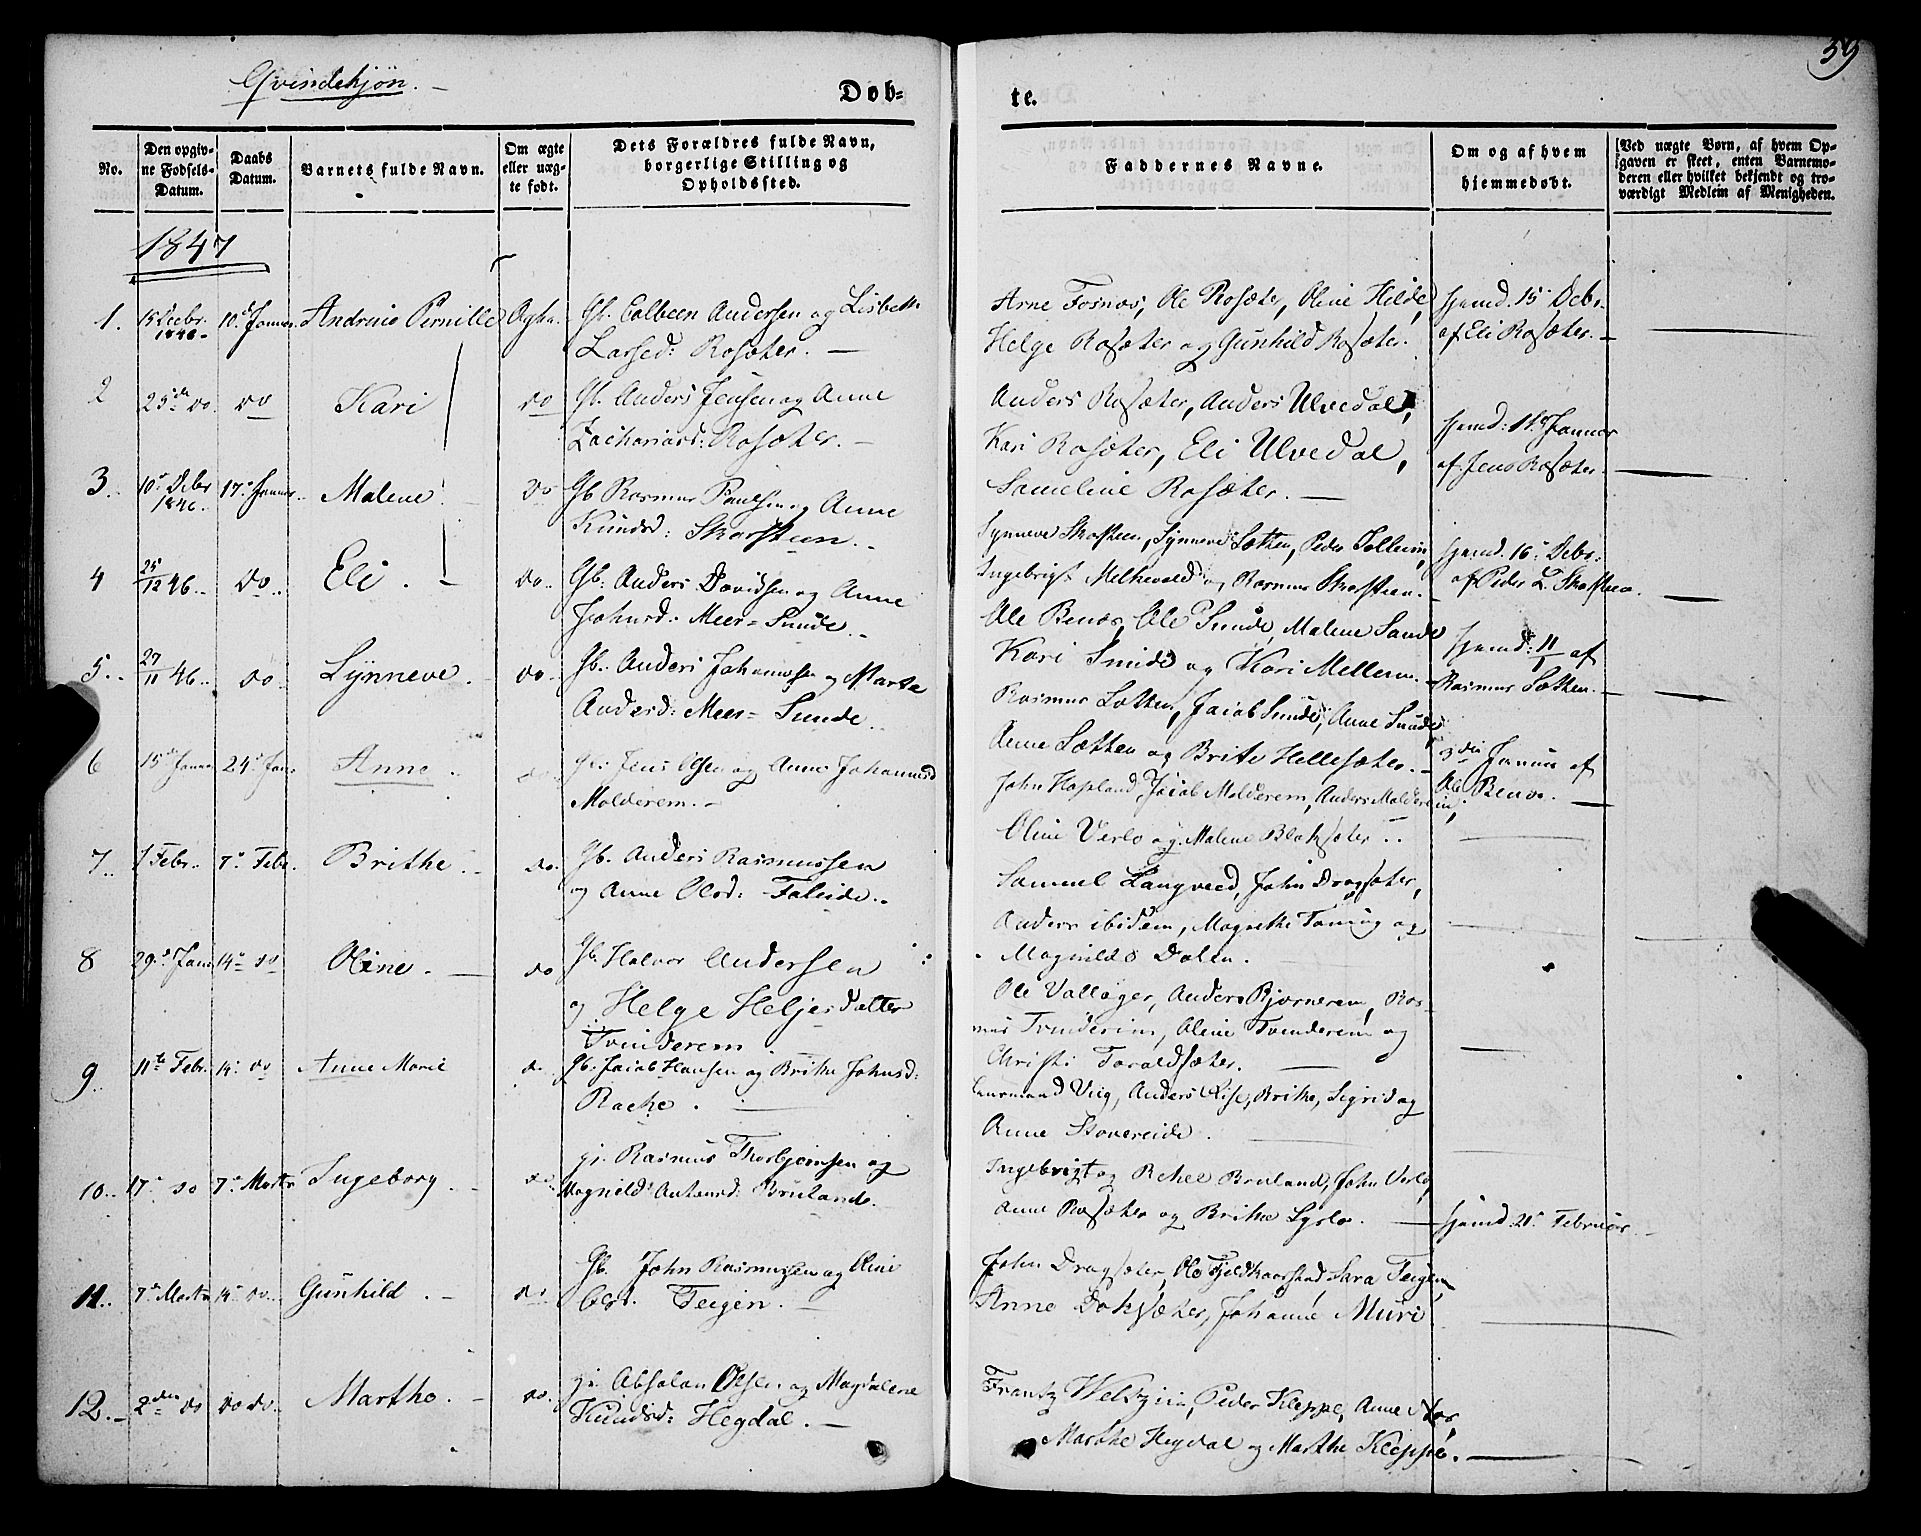 59
Qvindekjøn.
Døb-
te.
No.
Den opgiv-
ne Fødsels-
Datum.
Daabs
Datum.
Barnets fulde Navn.
Om ægte
eller uæg-
te født.
Dets Forældres fulde Navn,
borgerlige Stilling og
Opholdssted.
Faddernes Navne.
Om og af hvem
hjemmedøbt.
[Ved uægte Børn, af hvem Op-
gaven er skeet, enten Barnemo-
deren eller hvilket bekjendt og tro-
værdigt Medlem af Menigheden.
1847
1. 15 Decbr. 1846. 10d Januar Andrine Pernille Ægte. Gb. Colbeen Andersen og Lisbeth
Larsed: Rosæter.
Arne Fosnæs, Ole Rosæter, Oline Hilde,
Helge Rosæter og Gunhild Rosæter.
hjemd. 15 Debr.
af Eli Rosæter.
2 25de do. do Kari do Gb. Anders Jensen og Anne
Zachariasd: Rosæter.
Anders Rosæter, Anders Ulvedal,
Kari Rosæter, Eli Ulvedal,
Sameline Rosæter.
hjemd: 1ste Januar
af Jens Rosæter.
3. 10d Debr 1846. 17d Januar. Malene do Gb Rasmus Paulsen og Anne
Knudsd: Skarsteen.
Synneve Skarsteen, Synneve Sætten, Peder Tollevin,
Ingebrigt Melhevold og Rasmus Skarsteen.
hjemd. 16d Debr.
af Peder L. Skarsteen.
4 25/12 46. do. Eli. do. Gb. Anders Davidsen og Anne
Johnsd: Meer=Sunde.
Ole Benæs, Ole Sunde, Malene Sande
Kari Sunde og Kari Mellem.
hjemd: 11/1 af
Rasmus Sætten.
5. 27/11 46. do. Synneve. do. Gb. Anders Johannesen og Marte
Andersd: Meer=Sunde.
Rasmus Sætten, Jacob Sunde, Anne Sunde
Anne Sætten og Brite Hellesæter.
3die Januar af
Ole Benæs.
6 15de Janua 24d Jan. Anne. do. Gb. Jens Olsen og Anne Johannesd
Molderem.
John Hopland, Jacob Molderem, Anders Molderem,
Oline Verlo og Malene Blaksæter.
7. 1 Febr. 7d Febr. Brithe. do. Gb. Anders Rasmussen
og Anne Olsd: Faleide.
Samuel Langveed, John Dragsæter,
Anders ibidem, Magrethe Tanning og
Magnilde Dalen.
8 29d Janu 14d do Oline. do Gb. Halvor Andersen
og Helge Heljesdatter
Tvinderem
Ole Vallager, Anders Bjørnerem, Ras-
mus Tvinderem, Oline Tvinderem og
Christi Taraldsæter.
9. 11te Febr. 14d do Anne Marie do. Gb. Jacob Hansen og Brithe Johnsd:
Racke.
Vug, Anders Riise, Brithe, Sigrid og
Anne Stavereide.
10. 17d do 7d Marts Ingeborg. do. gi. Rasmus Thorbjørnsen og
Magnild Antonsd: Bruland.
Ingebrigt og Rakel Bruland, John Verlo,
Anne Rosæter og Brithe Lyslo.
hjemd. 21d Februar.
11. 7d Marts 14d do. Gunhild. do. Gb. John Rasmussen og Oline
Olsd. Teigen.
John Dragsæter, Ole Fjeldkaarstad, Sara Teigen,
Anne Dokssæter, Johanne Muri
12. 2den do do do. Martha. do. gi. Absalon Olsen og Magdalene
Knudsd: Hegdal.
Frantz Welkzin, Peder Kleppe, Anne Nos,
Marthe Hegdal og Marthe Kleppe.